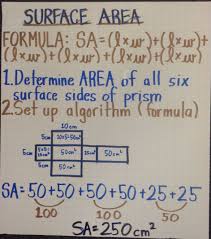 SURFACE AREA
FORMULA: SA=(l×w)+(l×w)+
(l×w)+(l×w)+(l×w)+(l×w)
1.Determine AREA of all six
surface sides of prism
2.Set up algorithm (formula)
10cm
5cm 10×5=50cm²
5cm 25cm² 50cm² 25cm² 50cm²
5cm 50cm²
SA=50+50+50+50+25+25
100 100 50
SA=250cm²